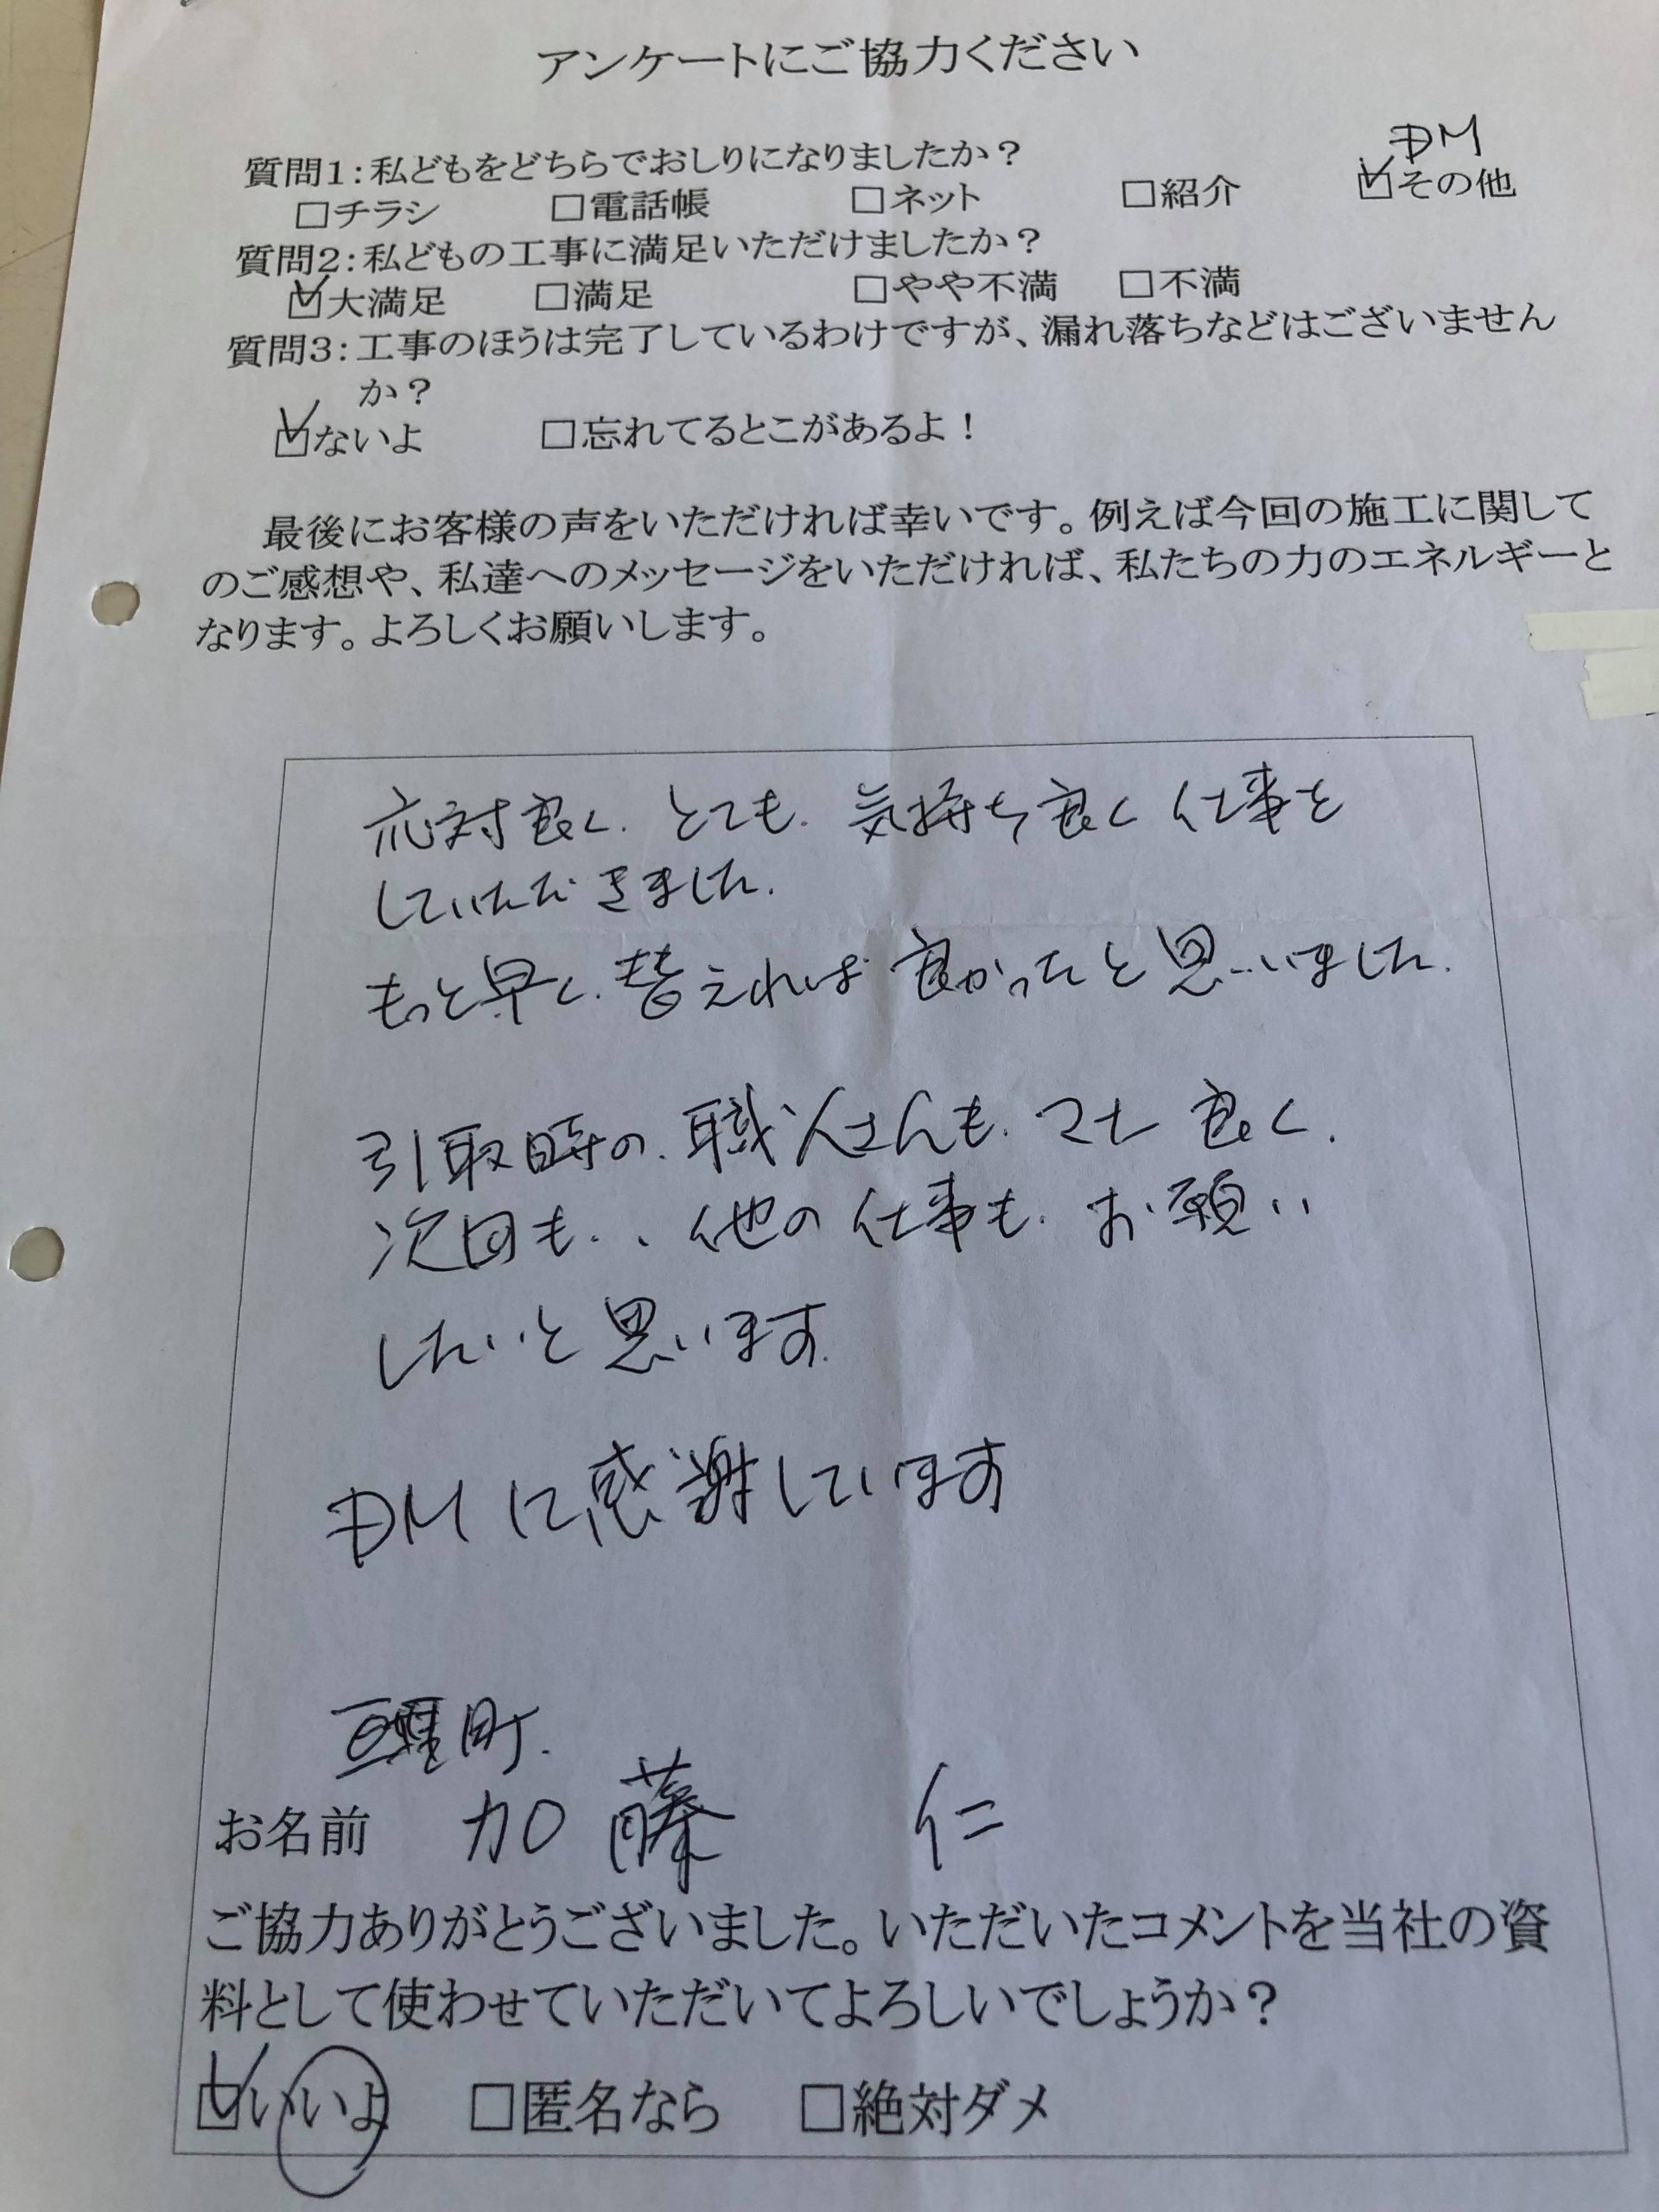 アンケートにご協力ください
質問1:私どもをどちらでおしりになりましたか?
DM
□チラシ □電話帳 □ネット □紹介 ☑その他
質問2:私どもの工事に満足いただけましたか?
☑大満足 □満足 □やや不満 □不満
質問3:工事のほうは完了しているわけですが、漏れ落ちなどはございません
か?
☑ないよ □忘れてるとこがあるよ!
最後にお客様の声をいただければ幸いです。例えば今回の施工に関して
のご感想や、私達へのメッセージをいただければ、私たちの力のエネルギーと
なります。よろしくお願いします。
応対良く、とても、気持ち良く仕事を
していただきました.
もっと早く、替えれば良かったと思いました.
引取時の、職人さんも、マナー良く、
次回も、、他の仕事も、お願い
したいと思います.
DMに感謝しています
亘理町.
お名前 加藤 仁
ご協力ありがとうございました。いただいたコメントを当社の資
料として使わせていただいてよろしいでしょうか?
☑いいよ □匿名なら □絶対ダメ